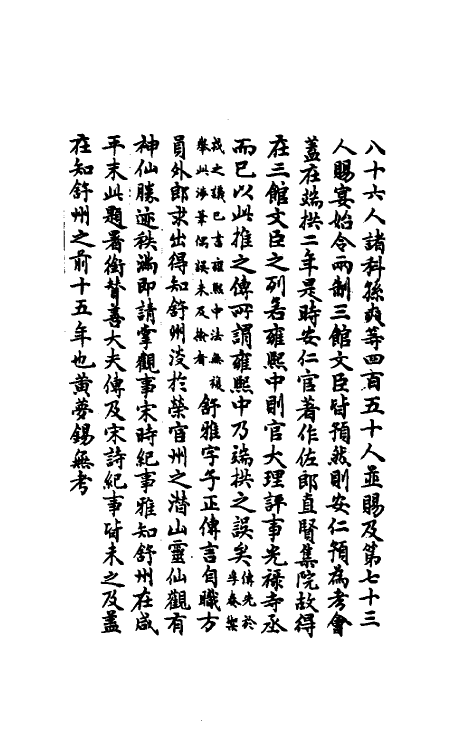 八十六人諸科孫奭等四百五十人並賜及第七十三
人賜宴始令兩制三館文臣皆預然則安仁預為考會
蓋在端拱二年是時安仁官著作佐郎直賢集院故得
在三館文臣之列若雍熙中則官大理評事光祿寺丞
而已以此推之傳所謂雍熙中乃端拱之誤矣傳先於李奉
戎之議已言雍熙中法無
舒雅字子正傳言自職方
員外郎求出得知舒州沒於榮宦州之潛山靈仙觀有
神仙勝迹秩滿即請掌觀事宋時紀事雅知舒州在咸
平末此題署銜贊善大夫傳及宋詩紀事皆未之及蓋
在知舒州之前十五年也黄夢錫無考